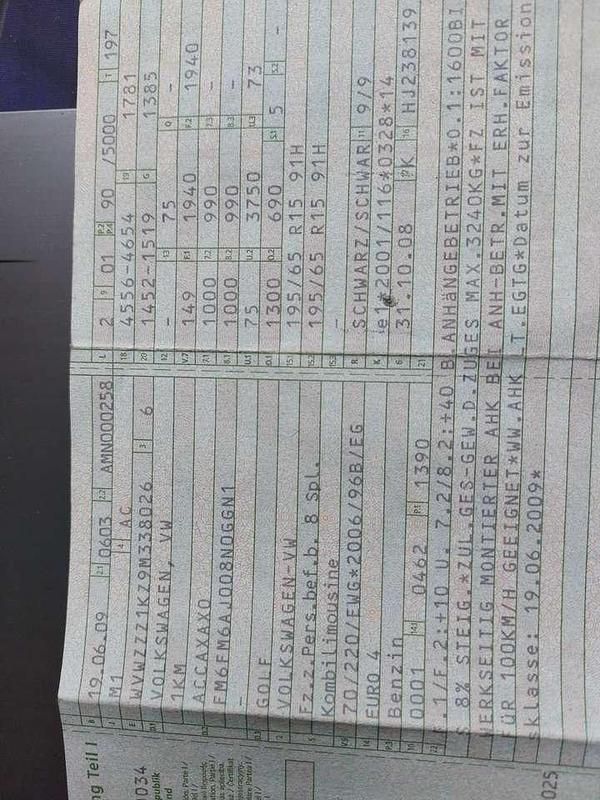 ng Teil I
034
publik
nd
025
B 19.06.09 2.1 0603 2.2 AMN000258
J M1 4 AC
E WVWZZZ1KZ9M338026 3 6
D.1 VOLKSWAGEN, VW
1KM
D.2 ACCAXAX0
FM6FM6AJ008N0GGN1
-
D.3 GOLF
2 VOLKSWAGEN-VW
5 Fz.z.Pers.bef.b. 8 Spl.
Kombilimousine
V.9 70/220/EWG*2006/96B/EG
14 EURO 4
P.3 Benzin
10 0001 14.1 0462 P.1 1390
L 2 9 01 P.2 P.4 90 /5000 T 197
18 4556-4654 19 1781
20 1452-1519 G 1385
12 - 13 75 Q -
V.7 149 F.1 1940 F.2 1940
7.1 1000 7.2 990 7.3 -
8.1 1000 8.2 990 8.3 -
U.1 75 U.2 3750 U.3 73
O.1 1300 O.2 690 S.1 5 S.2 -
15.1 195/65 R15 91H
15.2 195/65 R15 91H
15.3 -
R SCHWARZ/SCHWAR 11 9/9
K e1*2001/116*0328*14
6 31.10.08 17 K 16 HJ238139
21
22 .1/F.2:+10 U. 7.2/8.2:+40 B.ANHÄNGEBETRIEB*O.1:1600BI
8% STEIG.*ZUL.GES-GEW.D.ZUGES MAX.3240KG*FZ IST MIT
WERKSEITIG MONTIERTER AHK BEI ANH-BETR.MIT ERH.FAKTOR
FÜR 100KM/H GEEIGNET*WW.AHK LT.EGTG*Datum zur Emission
sklasse: 19.06.2009*